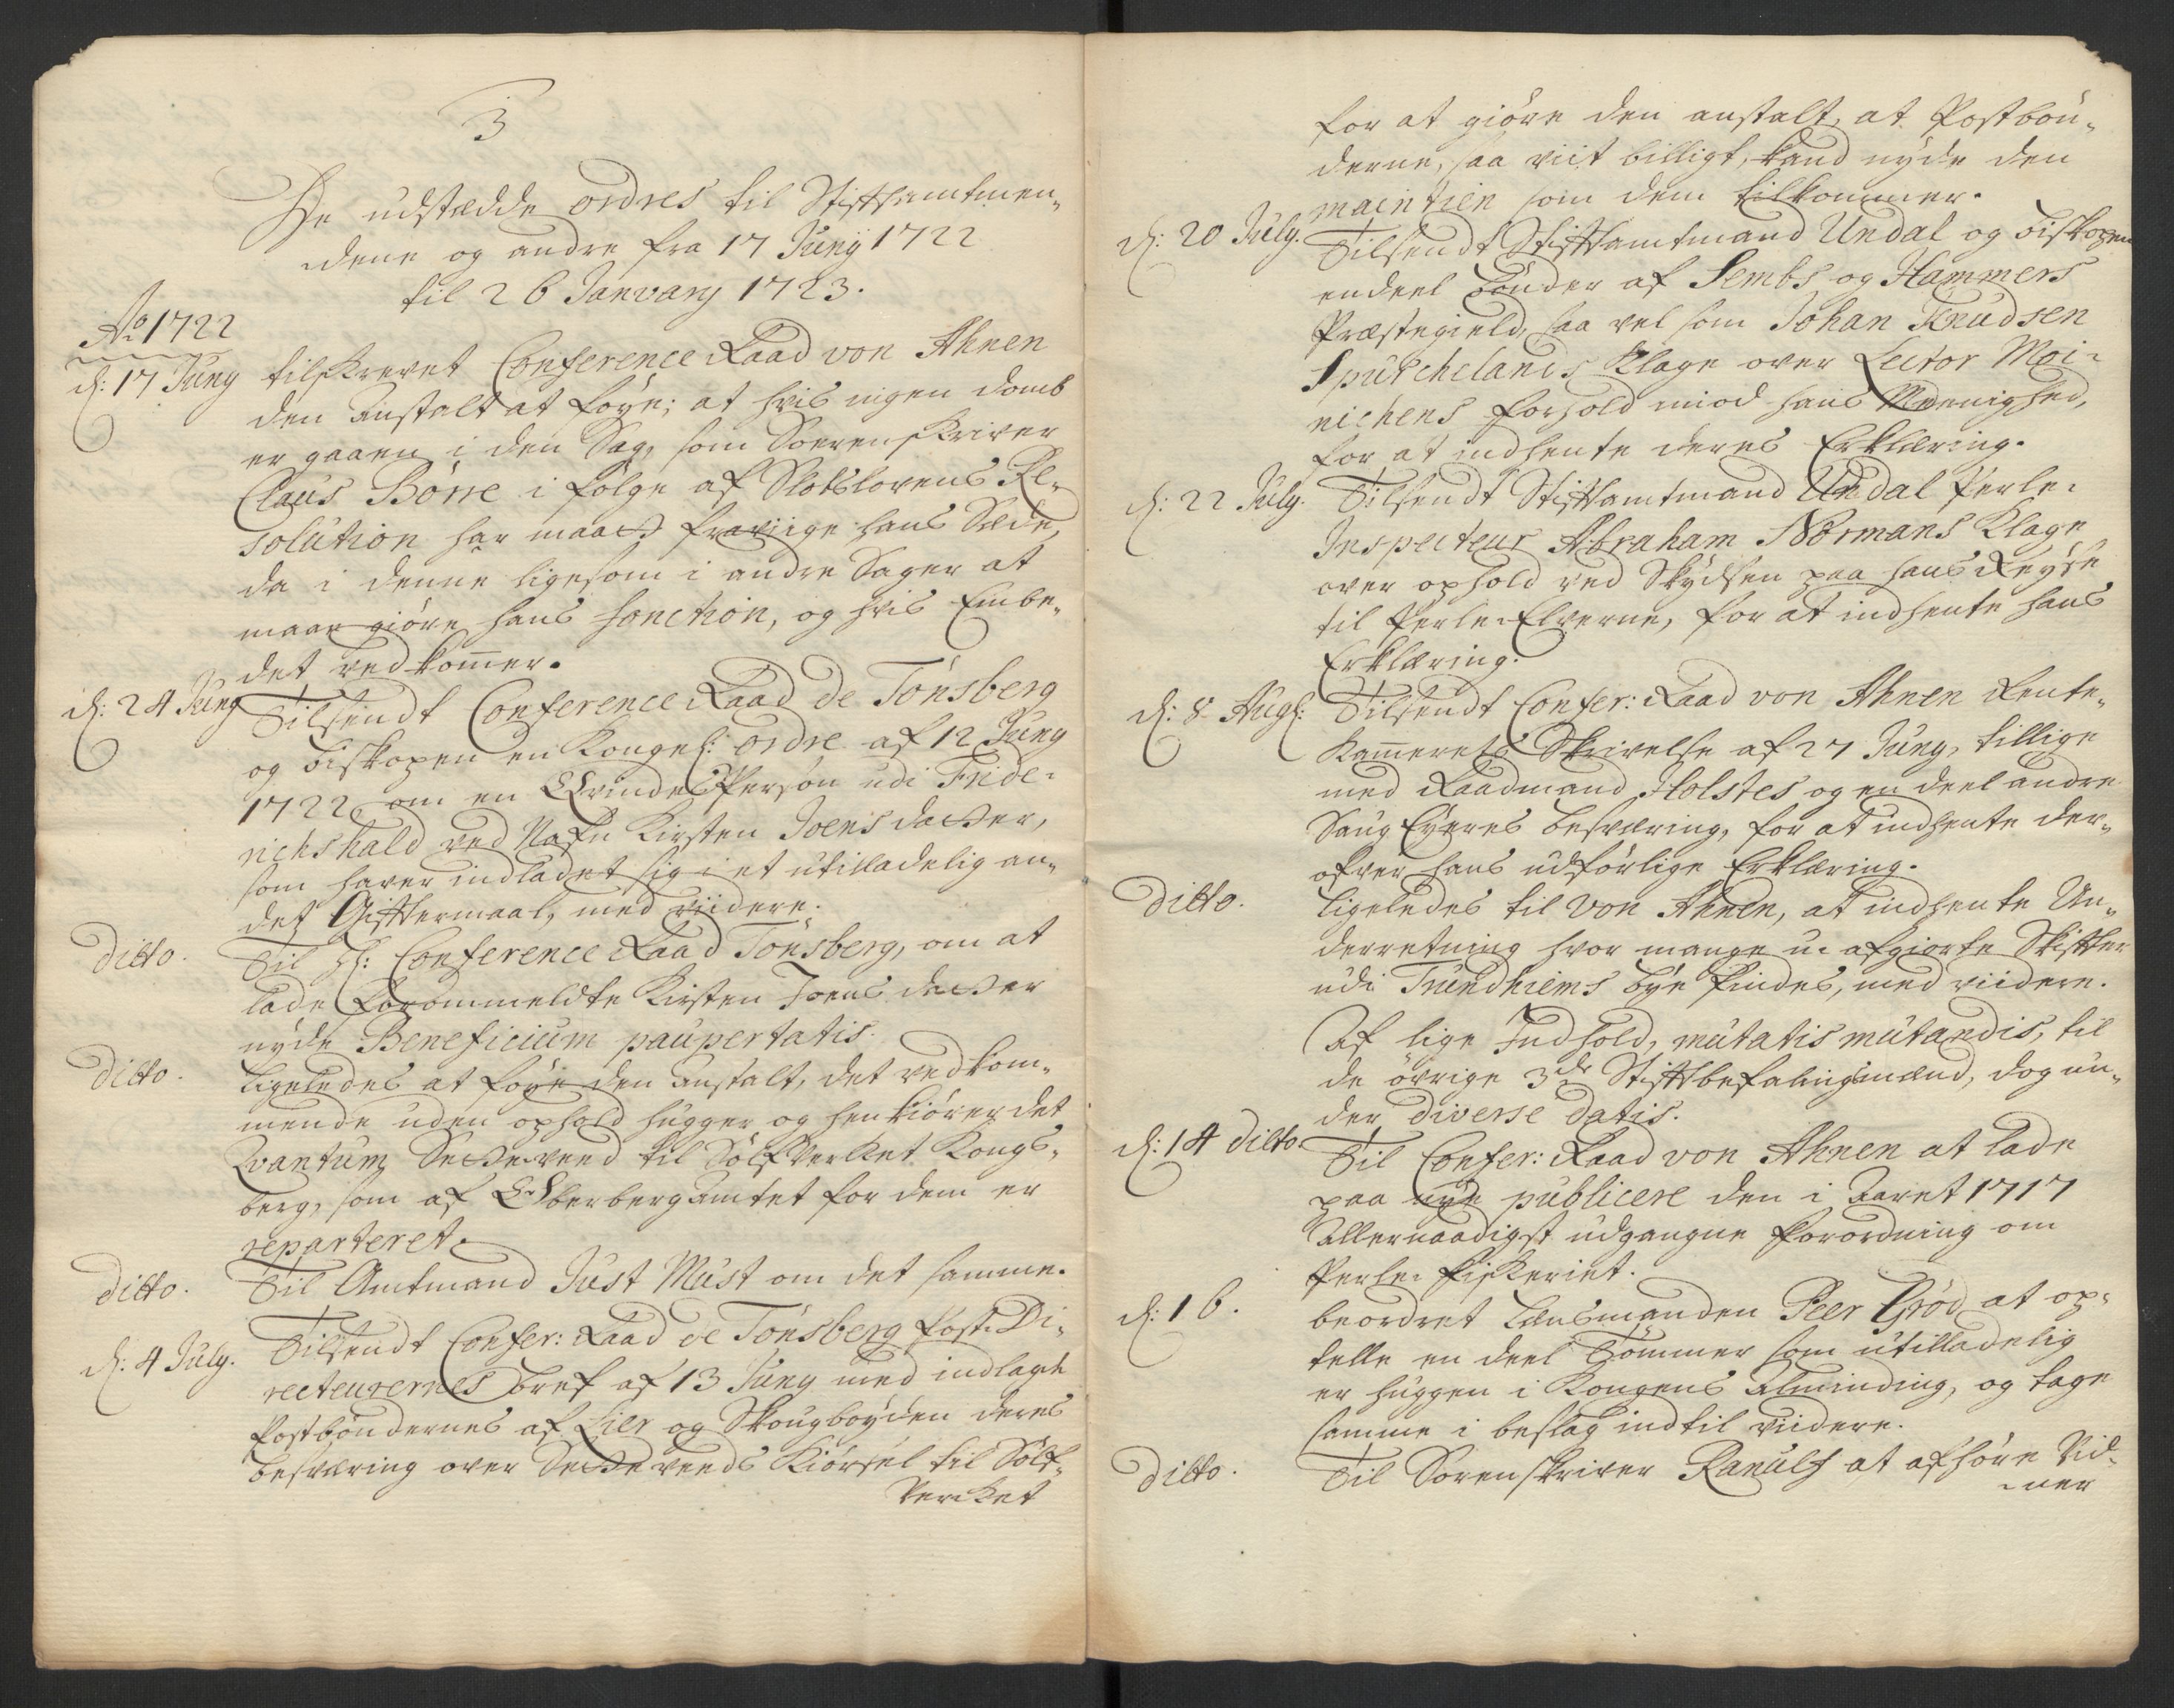 3
De udstædde ordres til Stiftsamtmen-
dene og andre fra 17 Junÿ 1722
til 26 January 1723.
Ao 1722
d: 17 Juny tilskrevet Conference Raad von Ahnen
den Anstalt at føye; at hvis ingen domb
er gaaen i den Sag, som Sorenskriver
Claus Börre i følge af Slotslovens Re-
solution har maatt fraviige hans Sæde,
da i denne ligesom i andre Sager at
maae giöre hans fonction, og hvis Embe-
det vedkommer.
d: 24 Juny Tilsendt Conference Raad de Tönsberg
og biskopen en Kongel: ordre af 12 Juny
1722, om en Qvindes Person udi Fride-
richshald ved Nafn Kirsten Joensdatter,
som haver indladet sig i et utilladelig an-
det Gifftermaal, med viidere.
ditto. Til H: Conference Raad Tönsberg, om at
lade forommeldte Kirsten Joensdatter
nyde Beneficium paupertatis.
ditto. Ligeledes at føye den Anstalt, det vedkom-
mende uden ophold hugger og henkiörer det
Qvantum Setteveed til Sölfverket Kongs-
berg, som af Oberbergamtet for dem er
reparteret.
ditto. Til Amtmand Just Must om det samme.
d: 4 July. Tilsendt Confer: Raad de Tönsberg Post-Di-
recteurernes bref af 13 Juny med indlagde
Postböndernes af Lier og Skougboyden deres
besværing over Setteveeds Kiörsel til Sölf-
Verket
for at giöre den anstalt, at Postbön-
derne, saa viit billigt, kand nyde den
maintien som dem tilkommer.
d: 20 July. Tilsendt Stiftsamtmand Undal og biskopen
endeel bönder af Sembs og Hammers
Præstegield, saa vel som Johan Knudsen
Spurchelands Klage over Lector Moi-
nichens forhold mod hans Meenighed,
for at indhente deres Erklæring.
d: 22 July. Tilsendt Stiftsamtmand Undal Perle-
Inspecteur Abraham Normans Klage
over ophold ved Skydsen paa hans Reyse
til Perle-Elverne, for at indhente hans
Erklæring.
d: 8 Aug: Tilsendt Confer: Raad von Ahnen Rente-
Kammerets Skrivelse af 27 Juny, tillige
med Raadmand Holstes og en deel andre
Saug Eyeres besværing, for at indhente der-
ofver hans udförlige Erklæring.
ditto. Ligeledes til von Ahnen, at indhente Un-
derretning hvor mange u-afgiorte Skiffter
udi Trundhiems bye findes, med viidere.
Af lige Indhold, mutatis mutandis, til
de övrige 3de Stiftsbefalingsmænd, dog un-
der diverse datis.
d: 14 ditto. Til Confer: Raad von Ahnen at lade
paa nye publicere den i Aaret 1717
Allernaadigst udgangne Forordning om
Perle-fiskeriet.
d: 16. beordret Lænsmanden Peer Gröd at op-
telle en deel Tömmer som utilladelig
er huggen i Kongens Alminding, og tage
samme i beslag indtil viidere.
ditto. Til Sorenskriver Ranulf at afhöre Vid-
ner